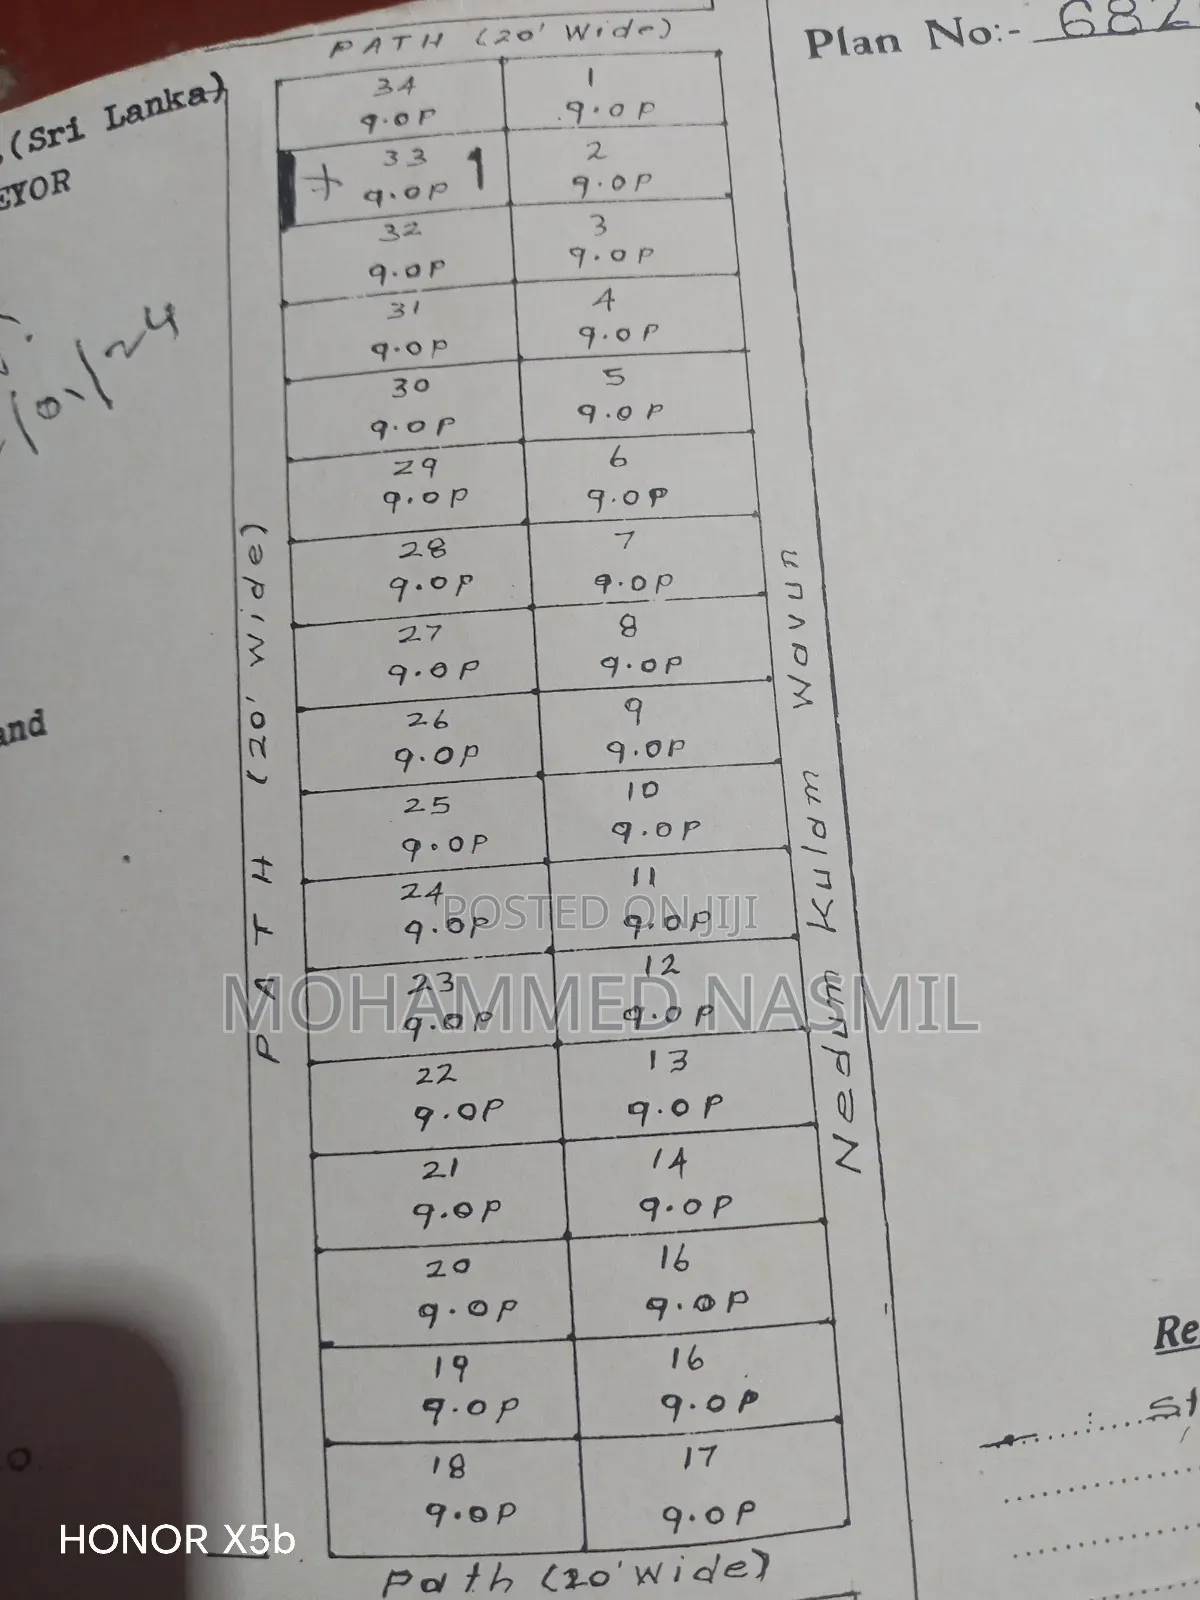 PATH (20' Wide)
Plan No:- 682
(Sri Lanka)
EYOR
34
9.0P
1
9.0P
+ 33 1
9.0P
2
9.0P
32
9.0P
3
9.0P
31
9.0P
4
9.0P
30
9.0P
5
9.0P
29
9.0P
6
9.0P
28
9.0P
7
9.0P
27
9.0P
8
9.0P
26
9.0P
9
9.0P
25
9.0P
10
9.0P
24
9.0P
11
9.0P
23
9.0P
12
9.0P
22
9.0P
13
9.0P
21
9.0P
14
9.0P
20
9.0P
16
9.0P
19
9.0P
16
9.0P
18
9.0P
17
9.0P
PATH (20' Wide)
Nedum Kulam
/01/24
and
Re
St
Path (20' Wide)
POSTED ON JIJI
MOHAMMED NASMIL
HONOR X5b